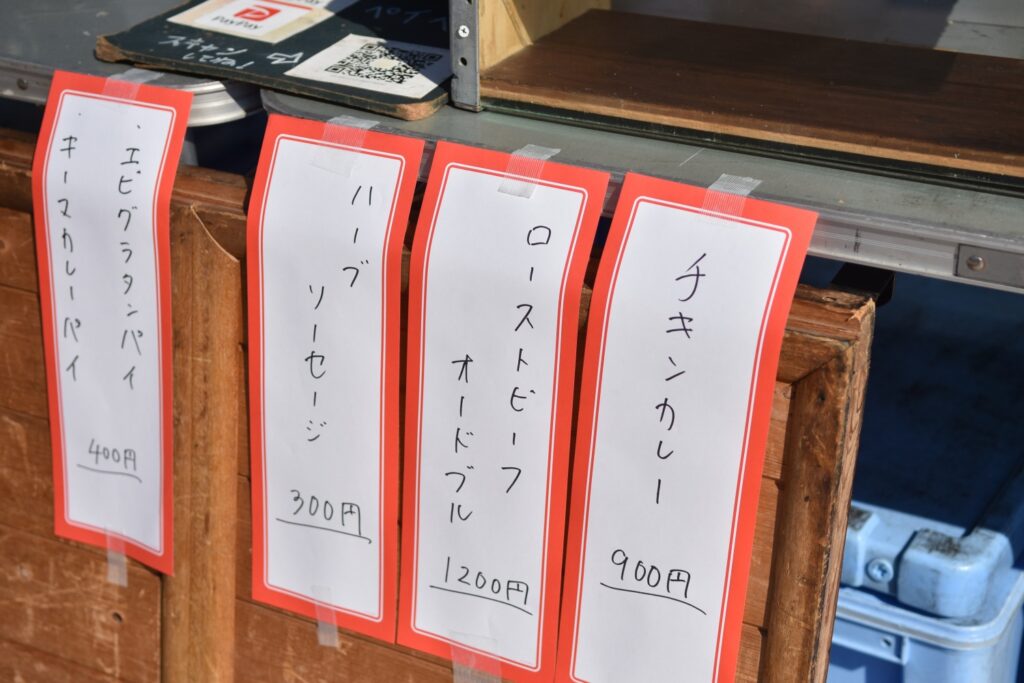 PayPay
スキャン
・エビグラタンパイ
・キーマカレーパイ
400円
ハーブ
ソーセージ
300円
ローストビーフ
オードブル
1200円
チキンカレー
900円